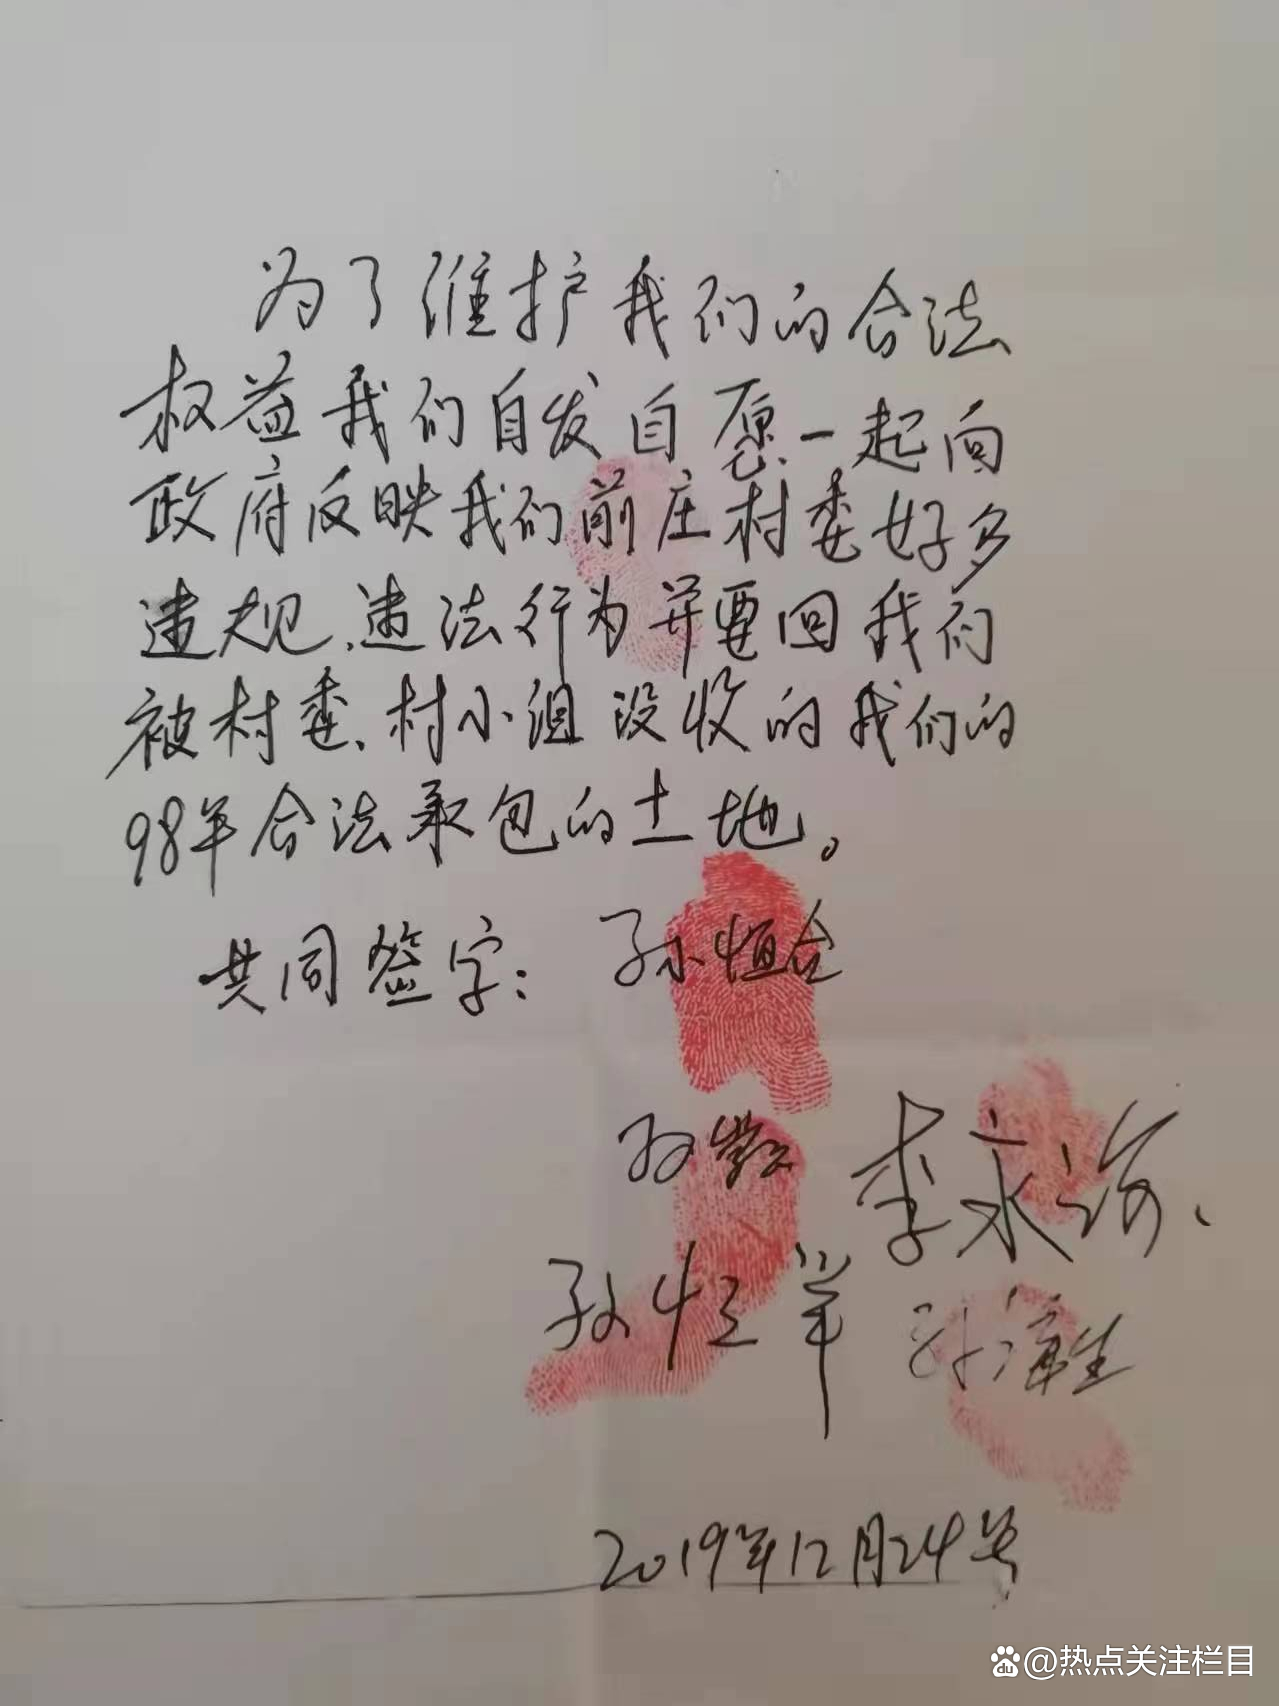 为了维护我们的合法
权益我们自发自愿一起向
政府反映我们前庄村委好多
违规、违法行为并要回我们
被村委、村小组没收的我们的
98年合法承包的土地。
共同签字： 孙恒合
孙
李永海、
孙恒羊
孙海生
2019年12月24号
@热点关注栏目